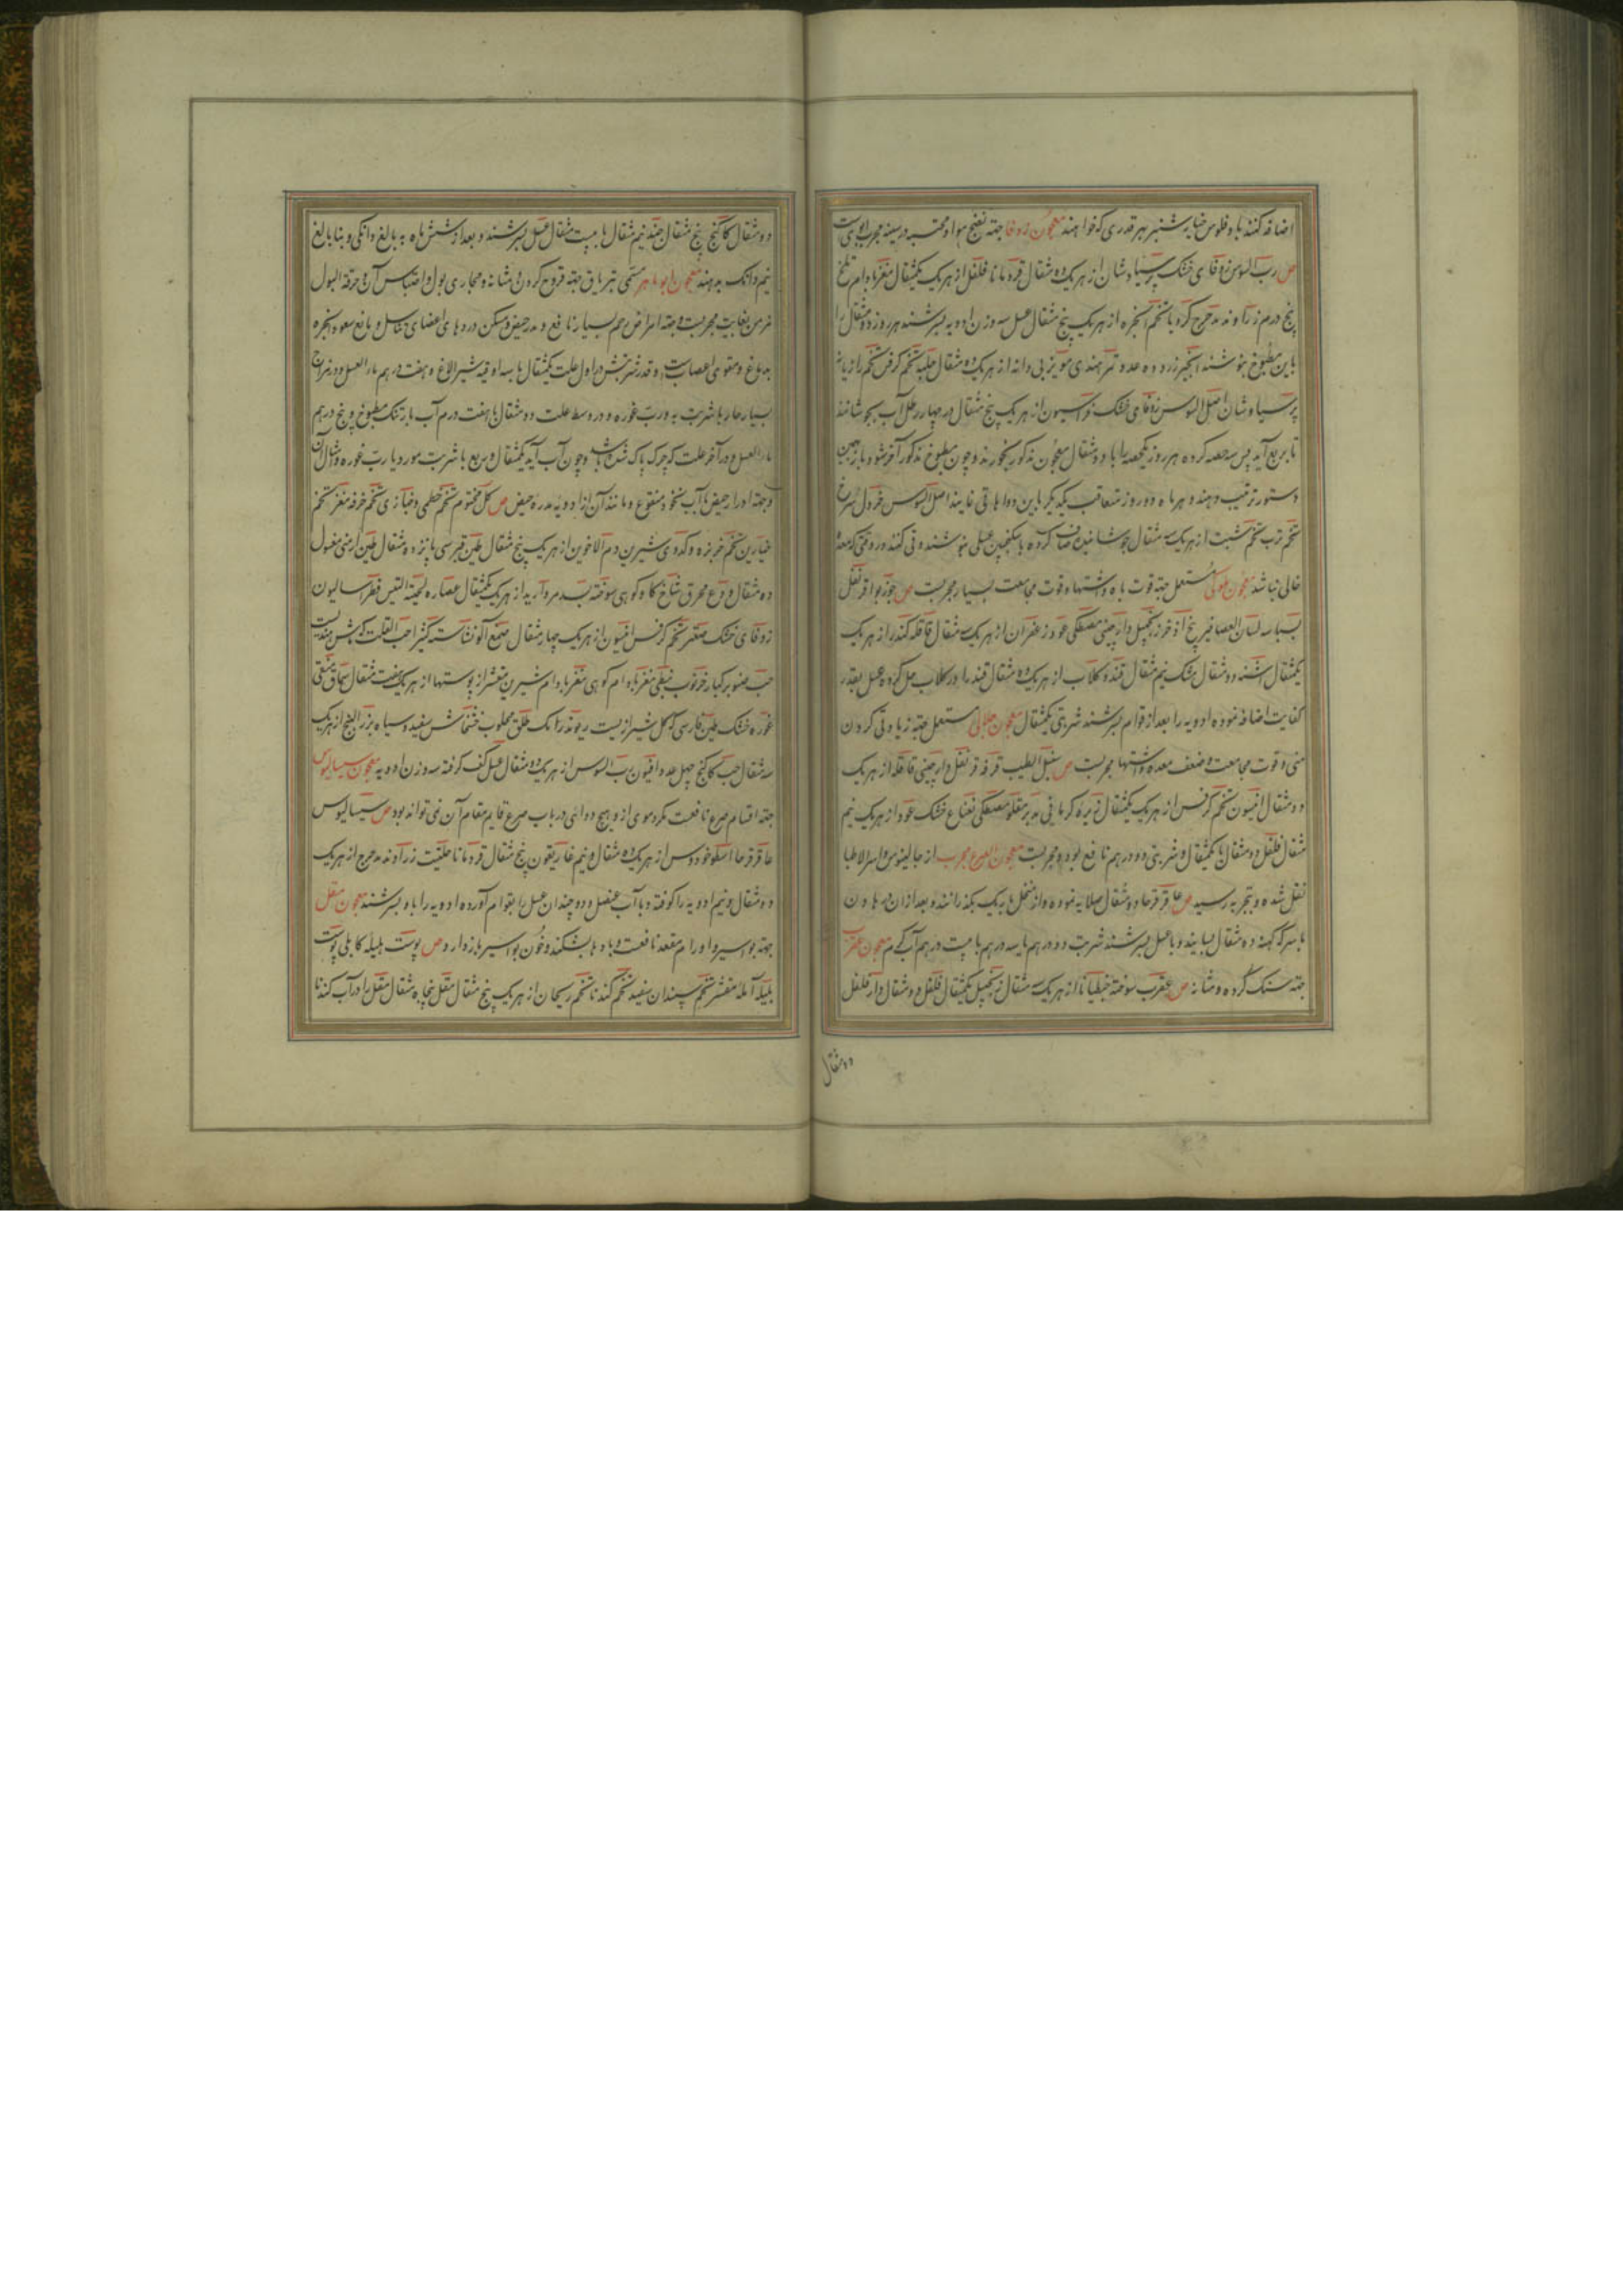 اضافه کنند با و فلوس خیارشنبر هر قدری که خواهند معجون زوفا جهته نضج مواد محتبسه در سینه مجرب
ص رب السوس زوفای خشک پرسیاوشان از هریک ده مثقال قردمانا فلفل از هریک یکمثقال مغز بادام تلخ
پنج درم زراوند مدحرج کرویا تخم انجره از هریک پنج مثقال عسل سه وزن ادویه بسرشند هر روز دو مثقال
باین مطبوخ بنوشند انجیر زرد ده عدد تمر هندی مویز بی دانه از هریک ده مثقال حلبه تخم کرفس تخم رازیانه
پرسیاوشان اصل السوس زوفای خشک فراسیون از هریک پنج مثقال در چهار رطل آب بجوشانند
تا بربع آید پس سه حصه کرده هر روز یکحصه را با دو مثقال معجون مذکور بخورند و چون مطبوخ مذکور آخر شود باز بهمین
دستور ترتیب دهند و هر ماه دو روز متعاقب یکدیگر باین دواها قی نمایند اصل السوس خردل سرخ
تخم ترب تخم شبت از هریک سه مثقال جوشانیده صاف کرده با سکنجبین عسلی بنوشند و قی کنند در وقتی که معده
خالی نباشد معجون ملوکی مستعمل جهته قوت باه و اشتها و قوت مجامعت بسیار مجربست ص جوزبوا قرنفل
بسباسه لسان العصافیر بیخ اذخر زنجبیل دارچینی مصطکی عود زعفران از هریک سه مثقال قاقله کندر از هریک
یکمثقال اشنه دو مثقال مشک نیم مثقال قند و کلاب از هریک ده مثقال قند را در کلاب حل کرده عسل بقدر
کفایت اضافه نموده ادویه را بعد از قوام بسرشند شربتی یکمثقال معجون جلالی مستعمل جهته زیادتی کردن
منی و قوت مجامعت و ضعف معده و اشتها مجربست ص سنبل الطیب قرفه قرنفل دارچینی قاقله از هریک
دو مثقال انیسون تخم کرفس از هریک یکمثقال زیره کرمانی مدبر مقلو مصطکی نعناع خشک عود از هریک نیم
مثقال فلفل دو مثقال یکمثقال و شربتی دو درهم نافع بوده و مجربست معجون الصرع مجرب از جالینوس و اسرار الاطبا
نقل شده و بتجربه رسیده ص عاقرقرحا ده مثقال صلایه نموده و از منخل باریک بگذرانند و بعد از آن در هاون
با سرکه کهنه ده مثقال بسایند و با عسل بسرشند شربت دو درهم با سه درهم با بیست درهم آب گرم معجون عقرب
جهته سنک کرده و مثانه ص عقرب سوخته جنطیانا از هریک سه مثقال زنجبیل یکمثقال فلفل دو مثقال دارفلفل
دو مثقال
دو مثقال کاکنج پنج مثقال جند نیم مثقال با بیست مثقال عسل بسرشند و بعد از شش ماه به بالغ دانکی و بنابالغ
نیم دانک بدهند معجون ابو ماهر مسمی بتریاق جهته قروح کرده و مثانه و مجاری بول و احتباس آن و حرقه البول
مزمن بغایت مجربست و جهته امراض رحم بسیار نافع و مدر حیض و مسکن دردهای اعضای تناسل و مانع صعود ابخره
بدماغ و مقوی اعصابست و قدر شربتش در اول علت یکمثقال با سه اوقیه شیر الاغ و هفت درهم ماء العسل و در مزاج
بسیار حار با شربت به و رب غوره و در وسط علت دو مثقال با هفت درم آب بارتنک مطبوخ و پنج درهم
ماء العسل و در آخر علت که چرک پاک شده باشد و چون آب آید یکمثقال و ربع با شربت مورد یا رب غوره و امثال آن
و جهته ادرار حیض با آب نخود منقوع و مانند آن از ادویه مدره حیض ص کل مختوم تخم خطمی و خبازی تخم خرفه مغز تخم
خیارین تخم خربزه و کدوی شیرین دم الاخوین از هریک پنج مثقال طین قبرسی پانزده مثقال طین ارمنی مغسول
ده مثقال ودع محرق شاخ کاو کوهی سوخته بسد مروارید از هریک یکمثقال عصاره لحیة التیس فطراسالیون
زوفای خشک صعتر تخم کرفس انیسون از هریک چهار مثقال صمغ آلو نشاسته کتیرا حب القلت که ماش هندیست
حب صنوبر کبار خرنوب نبطی مغز بادام کوهی مغز بادام شیرین مقشر از پوستها از هریک هفت مثقال سماق منقی
غوره خشک طین فارسی که کل شیرازیست ریوند رامک طلق محلوب خشخاش سفید و سیاه بزر البنج از هریک
سه مثقال حب کاکنج چهل عدد افیون رب السوس از هریک ده مثقال عسل کف کرفته سه وزن ادویه معجون سیسالیوس
جهته اقسام صرع نافعست مکر دموی از و هیچ دوائی در باب صرع قایم مقام آن نمی تواند بود ص سیسالیوس
عاقرقرحا اسطوخودوس از هریک ده مثقال و نیم غاریقون پنج مثقال قردمانا حلتیت زراوند مدحرج از هریک
دو مثقال و نیم ادویه را کوفته و با آب عنصل و دو چندان عسل را بقوام آورده ادویه را باو بسرشند معجون مقل
جهته بواسیر و اورام مقعد نافعست و بادها بشکند و خون بواسیر بازدارد ص پوست هلیله کابلی پوست
بلیله آمله مقشر تخم سپندان سفید تخم کندنا تخم ریحان از هریک پنج مثقال مقل پنجاه مثقال مقل را در آب کندنا